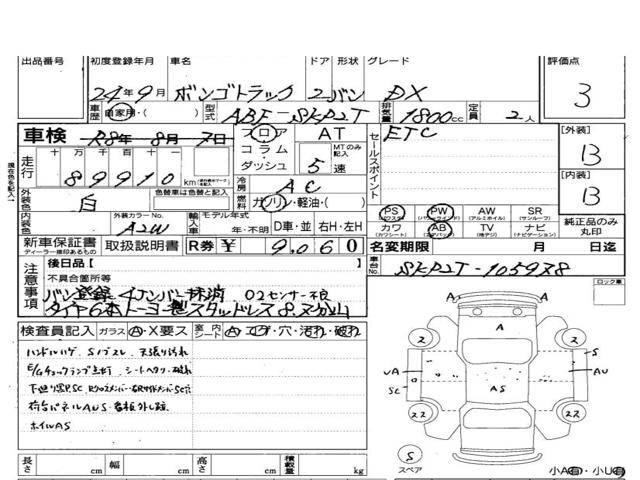 出品番号 初度登録年月 車名 ドア 形状 グレード 評価点
24年9月 ボンゴトラック 2 バン DX 3
車歴 自家用・( ) 型式 ABF-SKP2T 排気量 1800cc 定員 2人
車検 R8年 8月 7日 フロア コラム・ダッシュ AT MTのみ記入 5速
セールスポイント ETC
[外装] 13
[内装] 13
走行 十万千百十 89910 km
冷房 AC
外装色 白 色替車は色と記入 燃料 ガソリン・軽油・( )
PS (パワステ) PW (パワーウインド) AW (アルミホイル) SR (サンルーフ)
カワ (カワシート) AB (エアバック) TV (地デジ) ナビ (ナビゲーション)
純正品のみ丸印
内装色 外装カラーNo. A2W 輸入車 モデル年式 年・不明 D車・並 右H・左H
新車保証書 ディーラー捺印あるもの 取扱説明書 R券 ¥ 9,060 名変期限 月 日迄
現在色を記入
注意事項 後日品[ ]
車台No. SKP2T-105938
ロック車
不具合箇所等
バン登録 4ナンバー抹消 O2センサー不良
タイヤ6本トーヨー製スタッドレス
検査員記入 ガラス A・X要ス 室内シート A・コゲ・穴・汚れ・破れ
ハンドルハゲ Sノブスレ 天張り汚れ
E/Gチェックランプ点灯 シートヘタリ・破れ
荷台パネルAUS・看板外し跡
ホイルAS
A A A
UA SC AS S AU
22 22 22 22
S スペア
長さ cm 幅 cm 高さ cm 積載量 kg
小A有・小U有